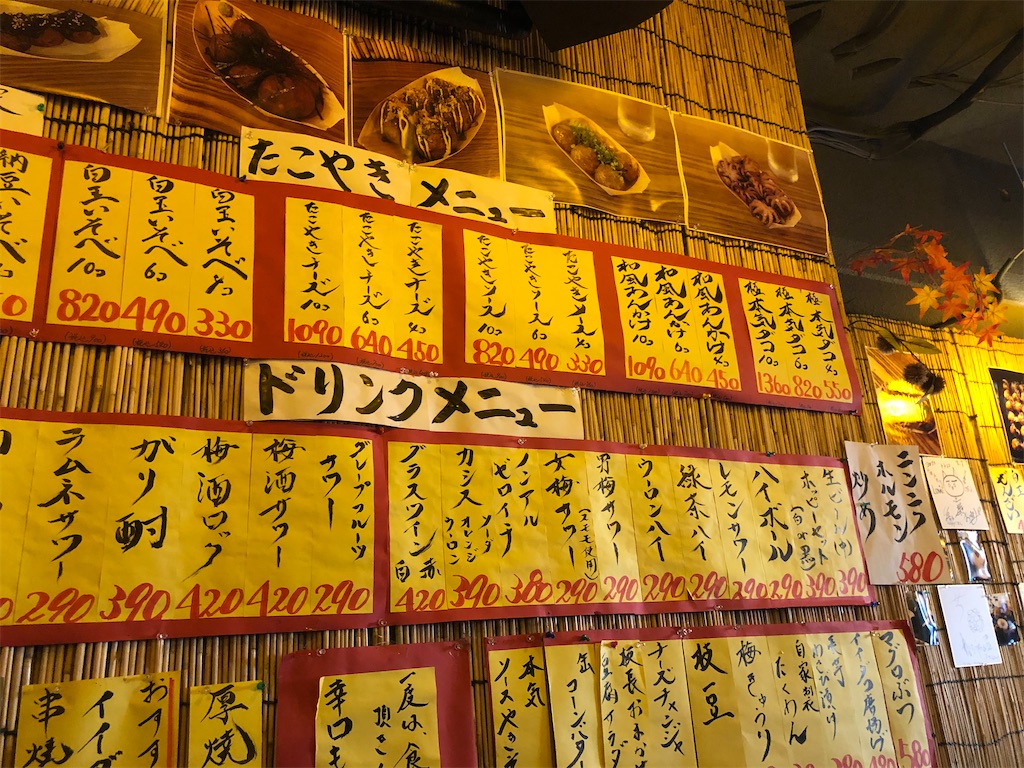 たこやき メニュー
極本気タコ 4コ 550
極本気タコ 6コ 820
極本気タコ 10コ 1360
和風あんかけ 4コ 450
和風あんかけ 6コ 640
和風あんかけ 10コ 1090
たこやきソース 4コ 330
たこやきソース 6コ 490
たこやきソース 10コ 820
たこやきチーズ 4コ 450
たこやきチーズ 6コ 640
たこやきチーズ 10コ 1090
白玉いそべ 4コ 330
白玉いそべ 6コ 490
白玉いそべ 10コ 820
納豆いそべ
ドリンクメニュー
生ビール(中) 390
ホッピーセット (白か黒) 390
ハイボール 290
レモンサワー 290
緑茶ハイ 290
ウーロンハイ 290
男梅サワー 290
女梅サワー 290
ノンアル ゼロイチ 380
カシス ソーダ オレンジ ウーロン 390
グラスワイン 赤 白 420
グレープフルーツ サワー 290
梅酒サワー 420
梅酒ロック 420
がり酎 390
ラムネサワー 290
ニンニク ホルモン 炒め 580
マグロぶつ 580
イナダ唐揚げ
わさび漬け
自家製 たくあん
梅きゅうり
枝豆
チーズチヂミ
板長おまかせ
缶コーンバター
本気 ソースやきそ
一度は、食
頂き
辛口も
厚焼
おすす
イイダ
串焼